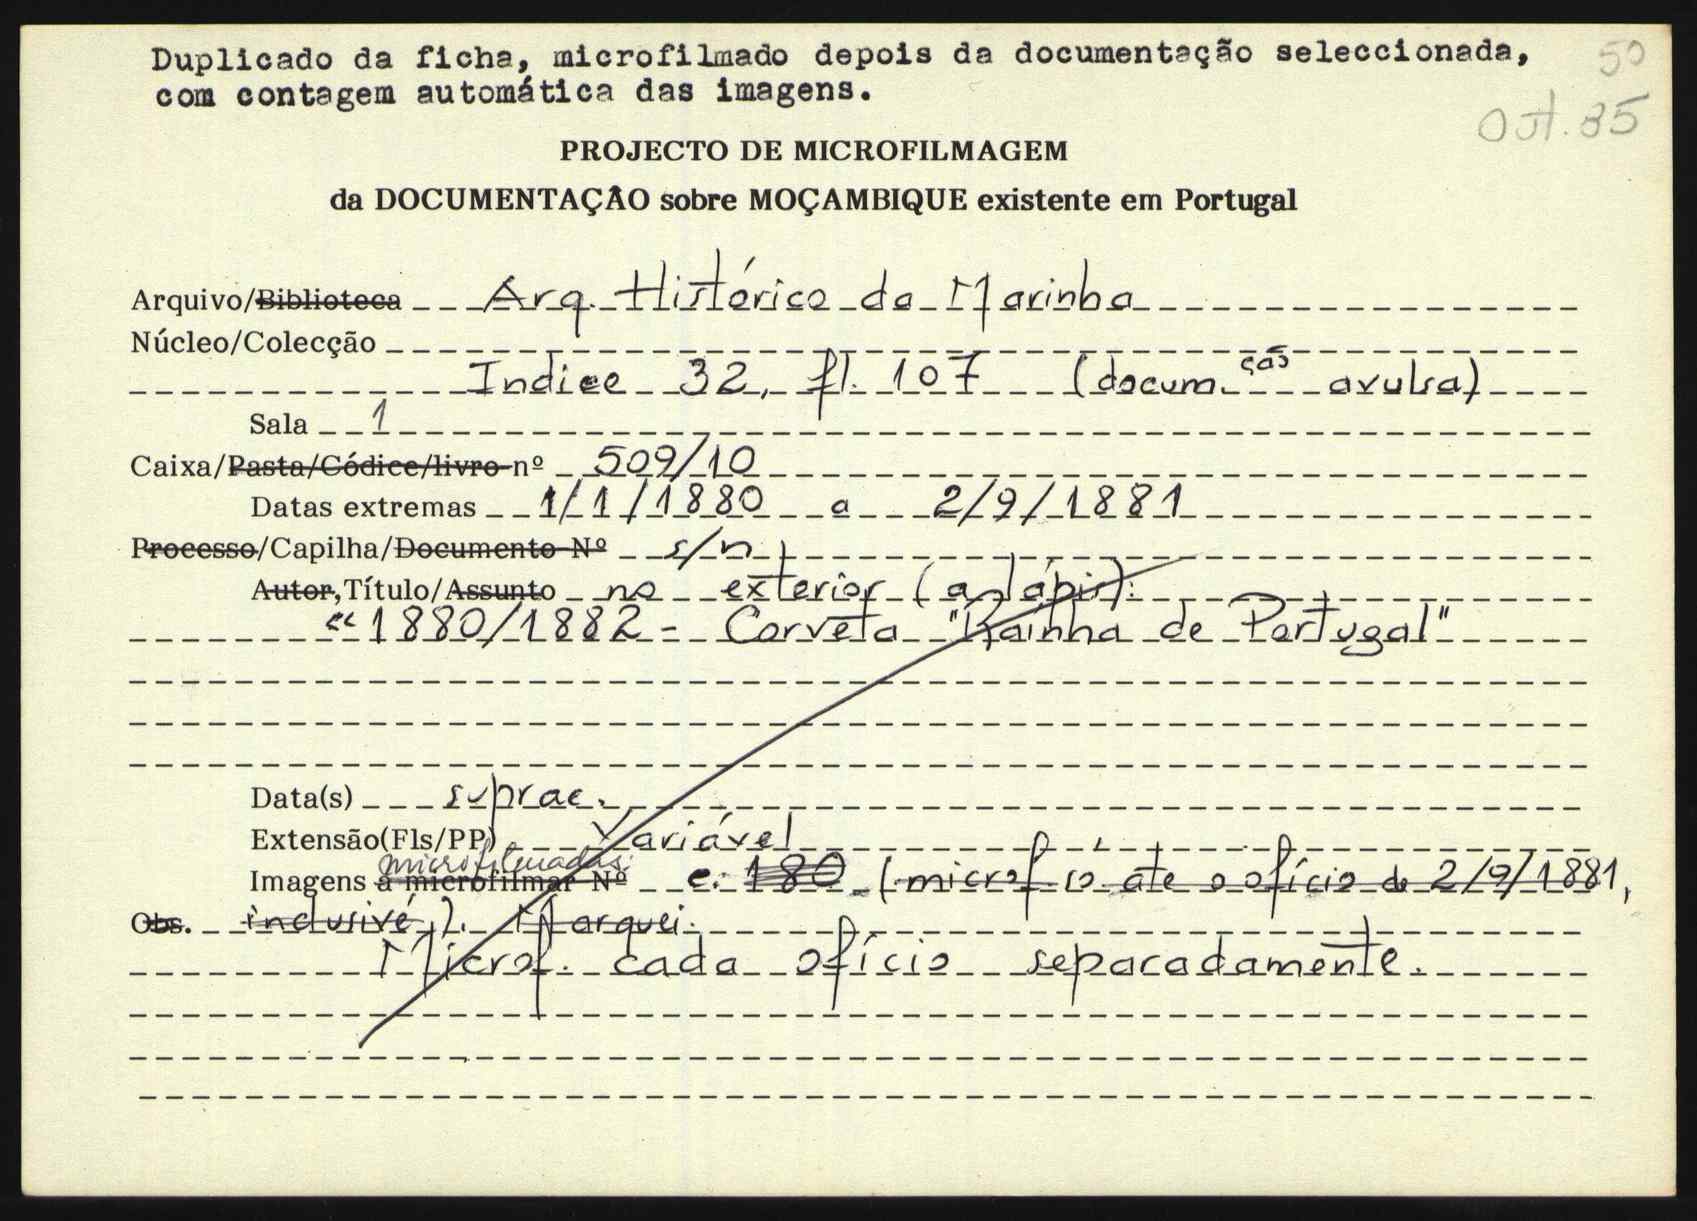 Duplicado da ficha, microfilmado depois da documentação seleccionada,
com contagem automática das imagens.
50
Out. 85
PROJECTO DE MICROFILMAGEM
da DOCUMENTAÇÃO sobre MOÇAMBIQUE existente em Portugal
Arquivo/Biblioteca Arq. Histórico da Marinha
Núcleo/Colecção
Indice 32, fl. 107 (docum.ção avulsa)
Sala 1
Caixa/Pasta/Códice/livro nº 509/10
Datas extremas 1/1/1880 a 2/9/1881
Processo/Capilha/Documento Nº s/n
Autor,Título/Assunto no exterior (a lápis):
"1880/1882 - Corveta "Rainha de Portugal"
Data(s) suprac.
Extensão(Fls/PP) Variável
microfilmadas:
Imagens a microfilmar Nº c. 180 (microf. só até o ofício de 2/9/1881,
Obs. inclusivé). Marquei.
Microf. cada ofício separadamente.